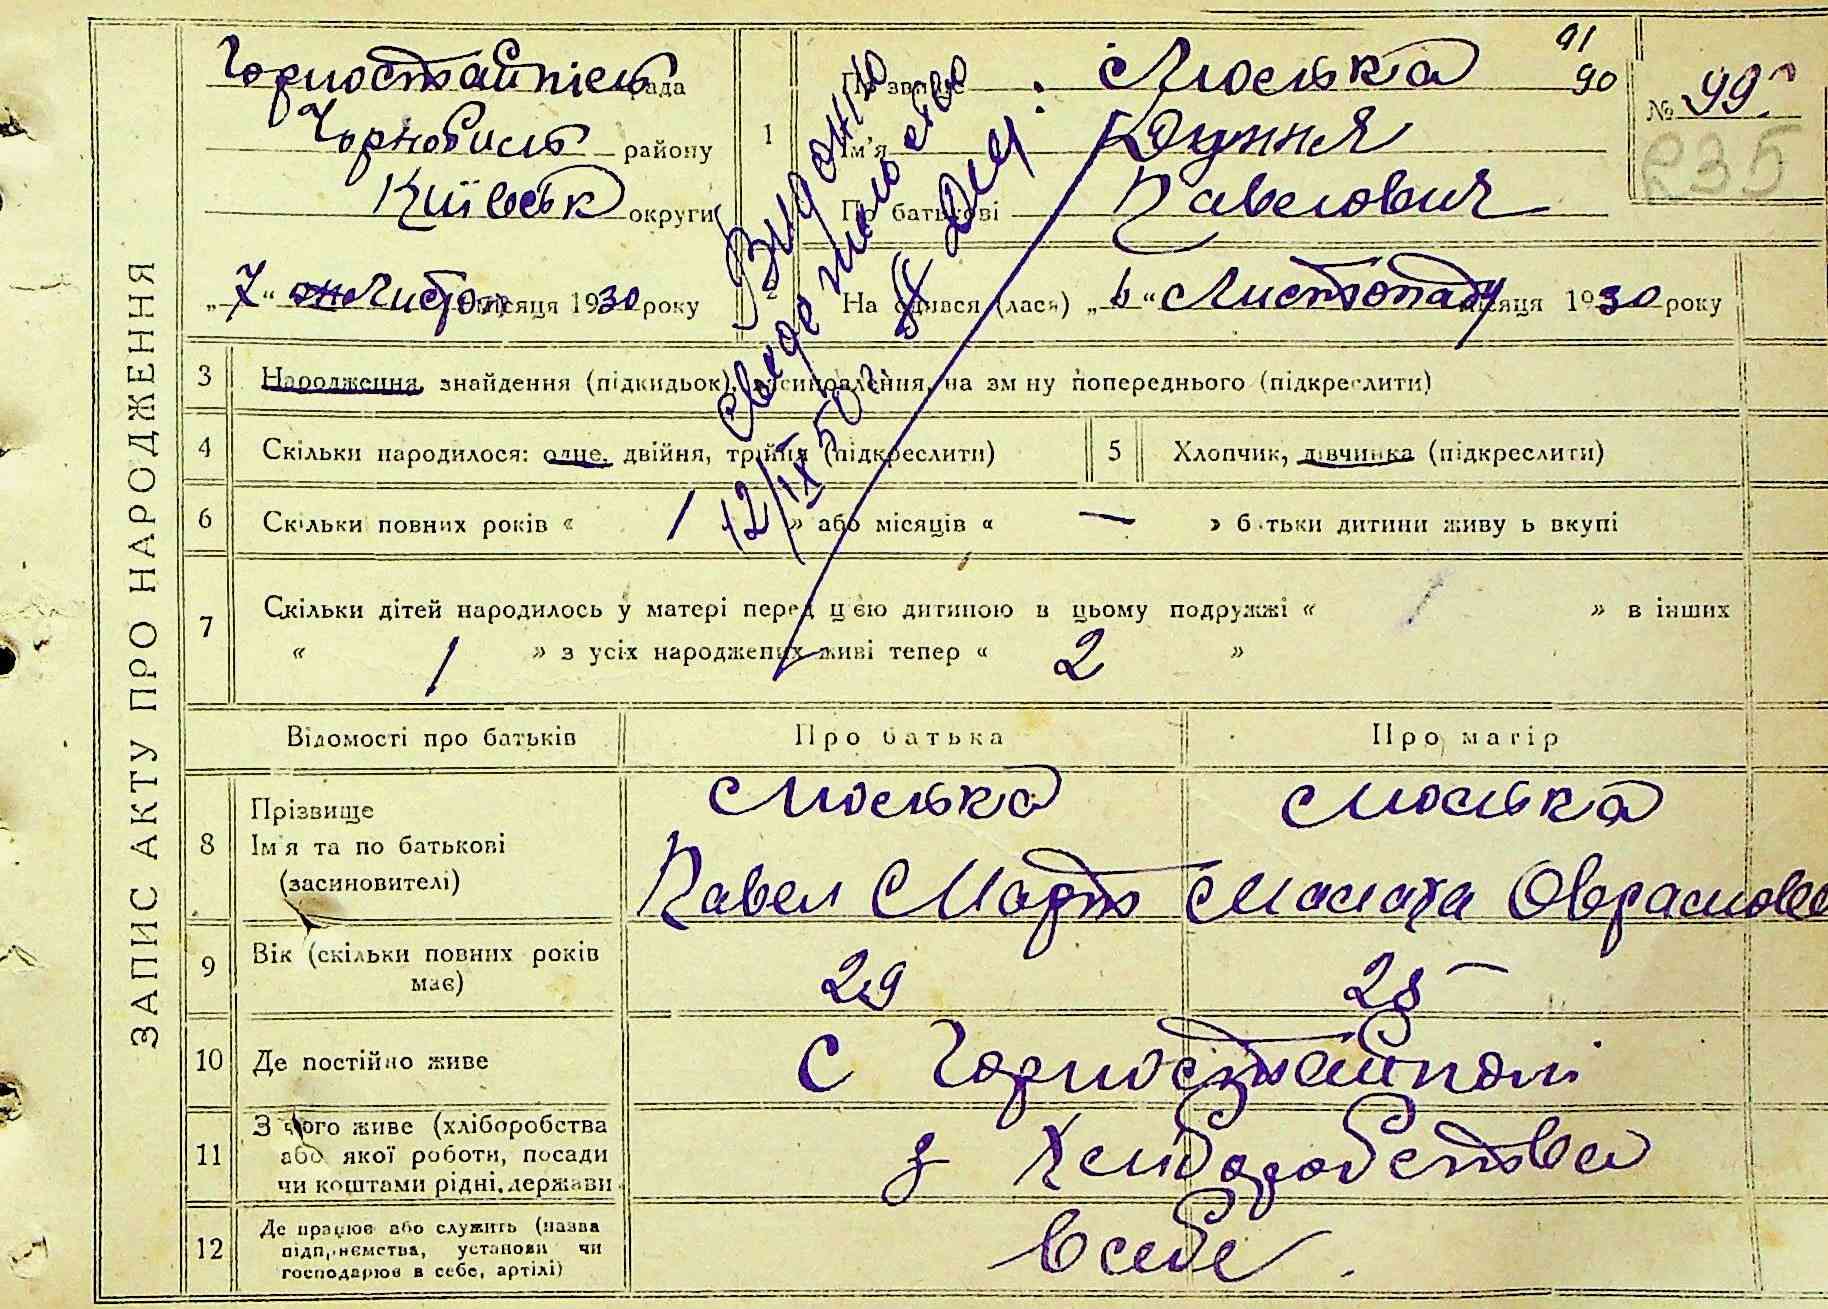 ЗАПИС АКТУ ПРО НАРОДЖЕННЯ
Горностайпіль рада
Чорнобиль району
Київськ округи
„7“ Листоп місяця 1930 року
1
Прізвище Моська
Ім'я Дуння
По батькові Павелович
91
90
№ 99
235
Видано
свідетельство
12/IX 50 г.
2 На одився (лася) „6“ Листопаду місяця 1930 року
3 Народження, знайдення (підкидьок), усиновлення, на зм ну попереднього (підкреслити)
4 Скільки народилося: одне, двійня, трійня (підкреслити)
5 Хлопчик, дівчинка (підкреслити)
6 Скільки повних років « 1 » або місяців « — » б тьки дитини живу ь вкупі
7 Скільки дітей народилось у матері перед цією дитиною в цьому подружжі « 1 » в інших
« 1 » з усіх народжених живі тепер « 2 »
Відомості про батьків Про батька Про матір
8 Прізвище
Ім'я та по батькові
(засиновителі)
Моська Моська
Павел Март Малаха Оврамовна
9 Вік (скільки повних років має) 29 28
10 Де постійно живе с Горностайполі
11 З чого живе (хліборобства
або якої роботи, посади
чи коштами рідні, держави
з Хліборобства
12 Де працює або служить (назва
підприємства, установи чи
господарює в себе, артілі)
в себе.